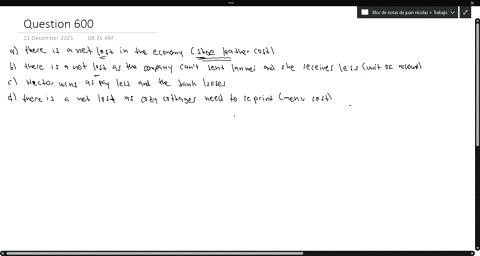 Bloc de notas de juan nicolas > Trabajo
Question 600
11 December 2021 08:35 AM
a) there is a net lost in the economy (shoe leather cost)
b) there is a net lost as the company can't sent and she receives less (unit of account)
c) Hector wins as pay less and the bank looses
d) there is a net lost as cozy cottages need to reprint (menu cost)